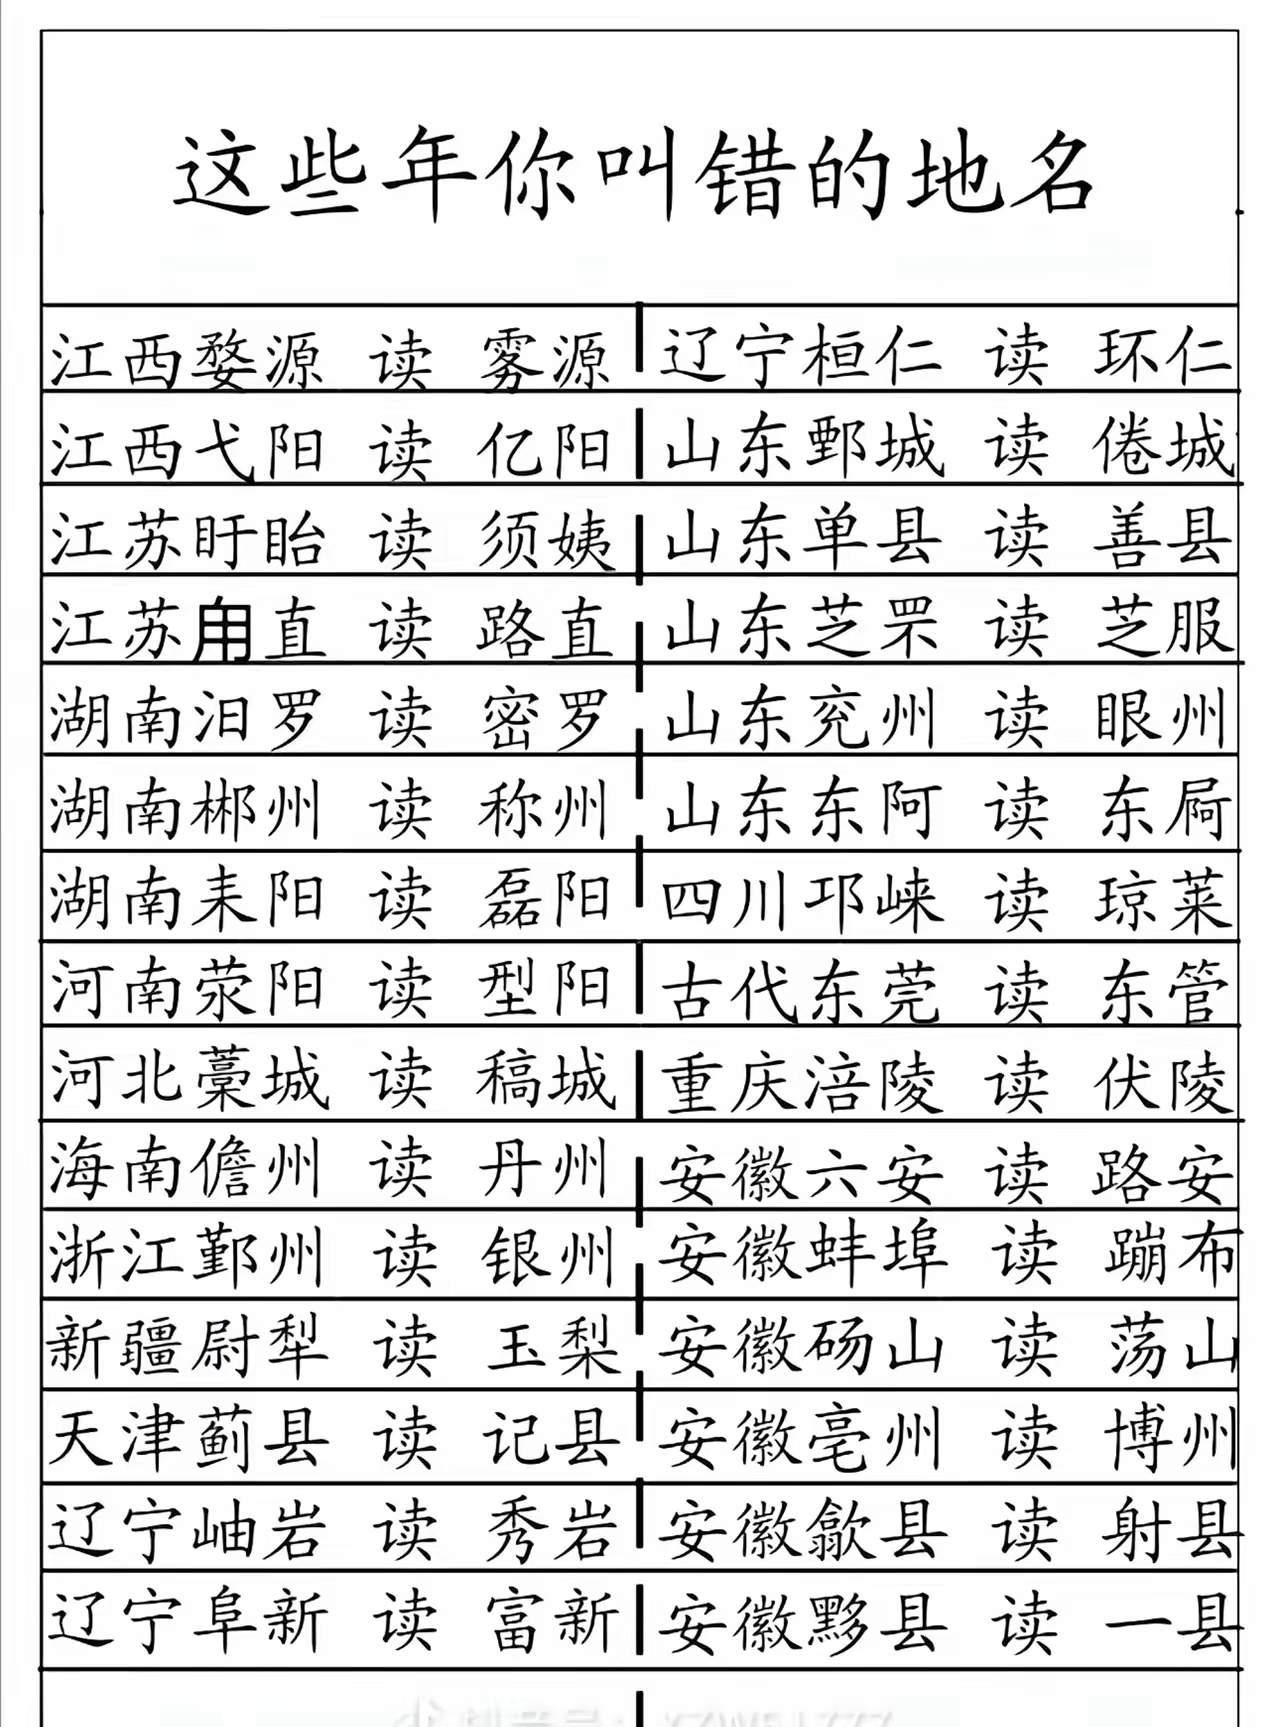 这些年你叫错的地名
江西婺源 读 雾源 辽宁桓仁 读 环仁
江西弋阳 读 亿阳 山东鄄城 读 倦城
江苏盱眙 读 须姨 山东单县 读 善县
江苏甪直 读 路直 山东芝罘 读 芝服
湖南汨罗 读 密罗 山东兖州 读 眼州
湖南郴州 读 称州 山东东阿 读 东屙
湖南耒阳 读 磊阳 四川邛崃 读 琼莱
河南荥阳 读 型阳 古代东莞 读 东管
河北藁城 读 稿城 重庆涪陵 读 伏陵
海南儋州 读 丹州 安徽六安 读 路安
浙江鄞州 读 银州 安徽蚌埠 读 蹦布
新疆尉犁 读 玉梨 安徽砀山 读 荡山
天津蓟县 读 记县 安徽亳州 读 博州
辽宁岫岩 读 秀岩 安徽歙县 读 射县
辽宁阜新 读 富新 安徽黟县 读 一县